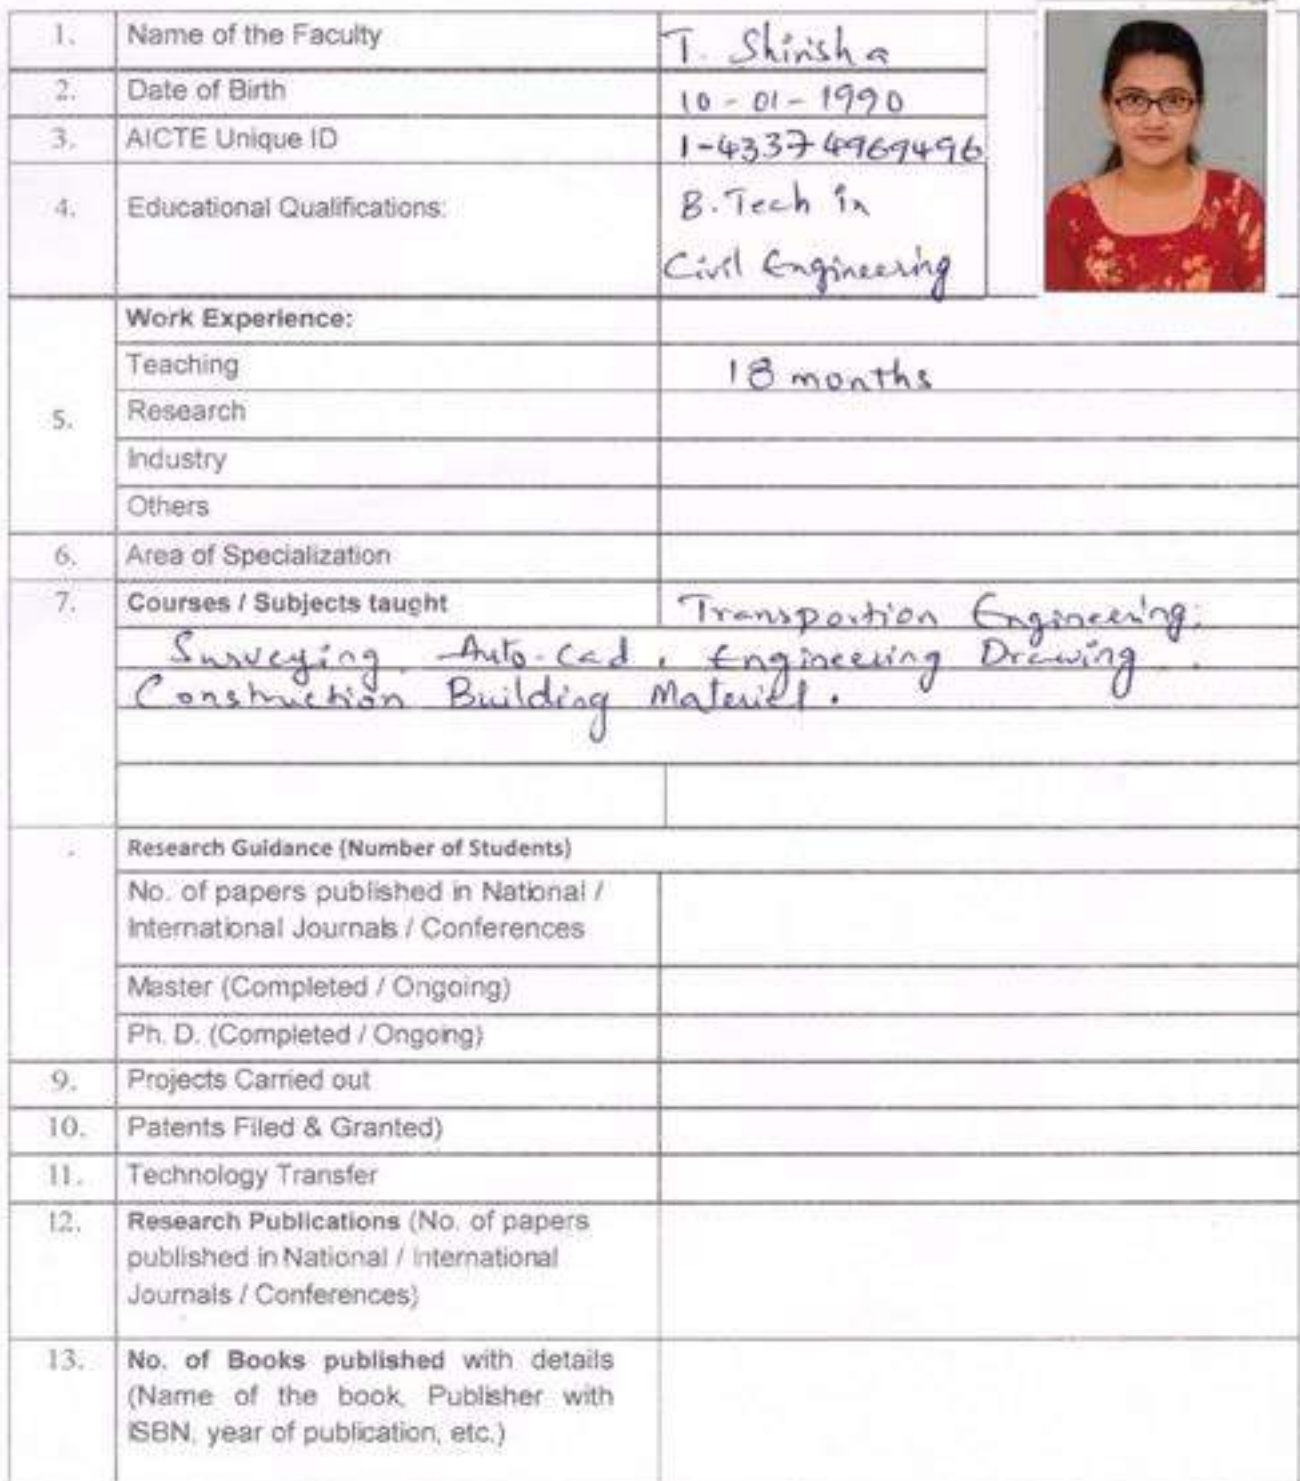 1. Name of the Faculty T. Shirisha
2. Date of Birth 10-01-1990
3. AICTE Unique ID 1-43374969496
4. Educational Qualifications: B.Tech in
Civil Engineering
Work Experience:
Teaching 18 months
5. Research
Industry
Others
6. Area of Specialization
7. Courses / Subjects taught Transportion Engineering,
Surveying, Auto-Cad, Engineering Drawing,
Construction Building Materiel.
. Research Guidance (Number of Students)
No. of papers published in National /
International Journals / Conferences
Master (Completed / Ongoing)
Ph. D. (Completed / Ongoing)
9. Projects Carried out
10. Patents Filed & Granted)
11. Technology Transfer
12. Research Publications (No. of papers
published in National / International
Journals / Conferences)
13. No. of Books published with details
(Name of the book, Publisher with
ISBN, year of publication, etc.)